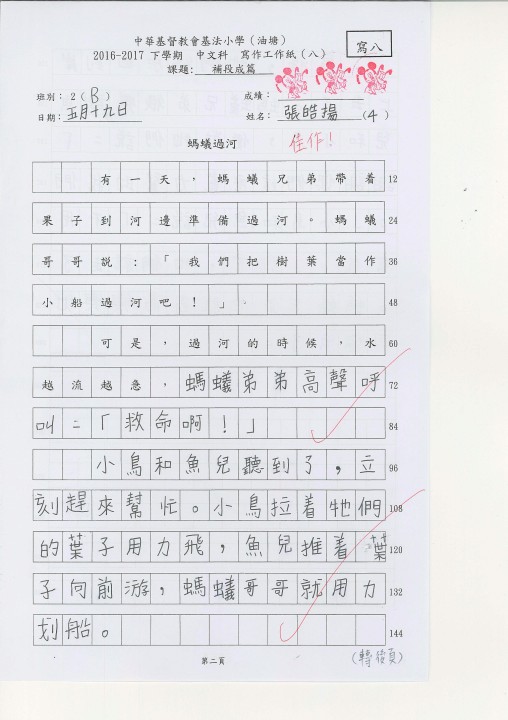 中華基督教會基法小學（油塘）
寫八
2016-2017 下學期　中文科　寫作工作紙（八）
課題：　補段成篇
班別：2（B）　成績：
日期：五月十九日　姓名：張皓揚（4）
佳作！
螞蟻過河
有一天，螞蟻兄弟帶着 12
果子到河邊準備過河。螞蟻 24
哥哥説：「我們把樹葉當作 36
小船過河吧！」 48
可是，過河的時候，水 60
越流越急，螞蟻弟弟高聲呼 72
叫：「救命啊！」 84
小鳥和魚兒聽到了，立 96
刻趕來幫忙。小鳥拉着牠們 108
的葉子用力飛，魚兒推着葉 120
子向前游，螞蟻哥哥就用力 132
划船。 144
第二頁
（轉後頁）